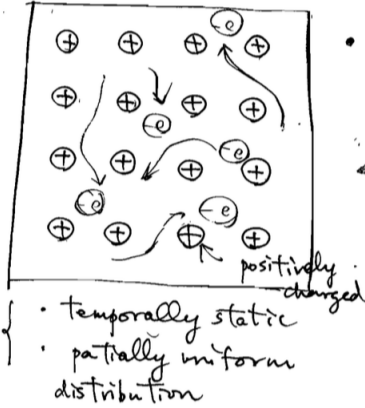 -e
+ + + +
+ + + +
-e
-e
+ + + +
-e -e
+ + + +
positively
charged
· temporally static
· patially uniform
distribution